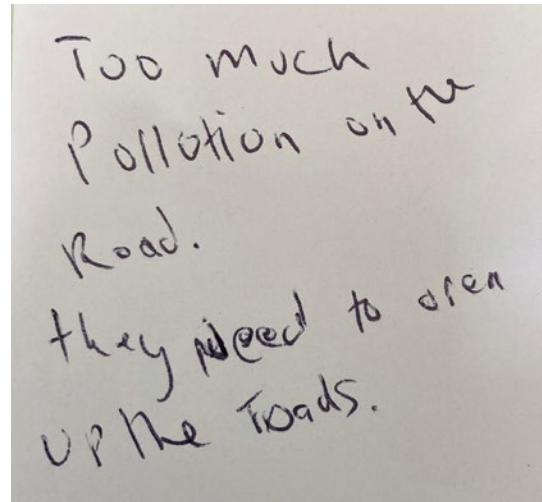 Too much
Pollution on the
Road.
they Need to open
up the roads.